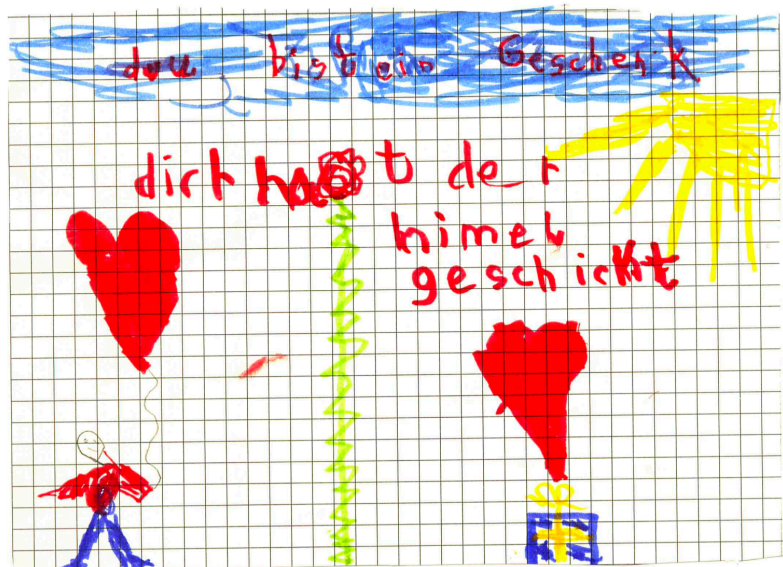 du bist ein Geschenk
dich hat der
himel
geschickt